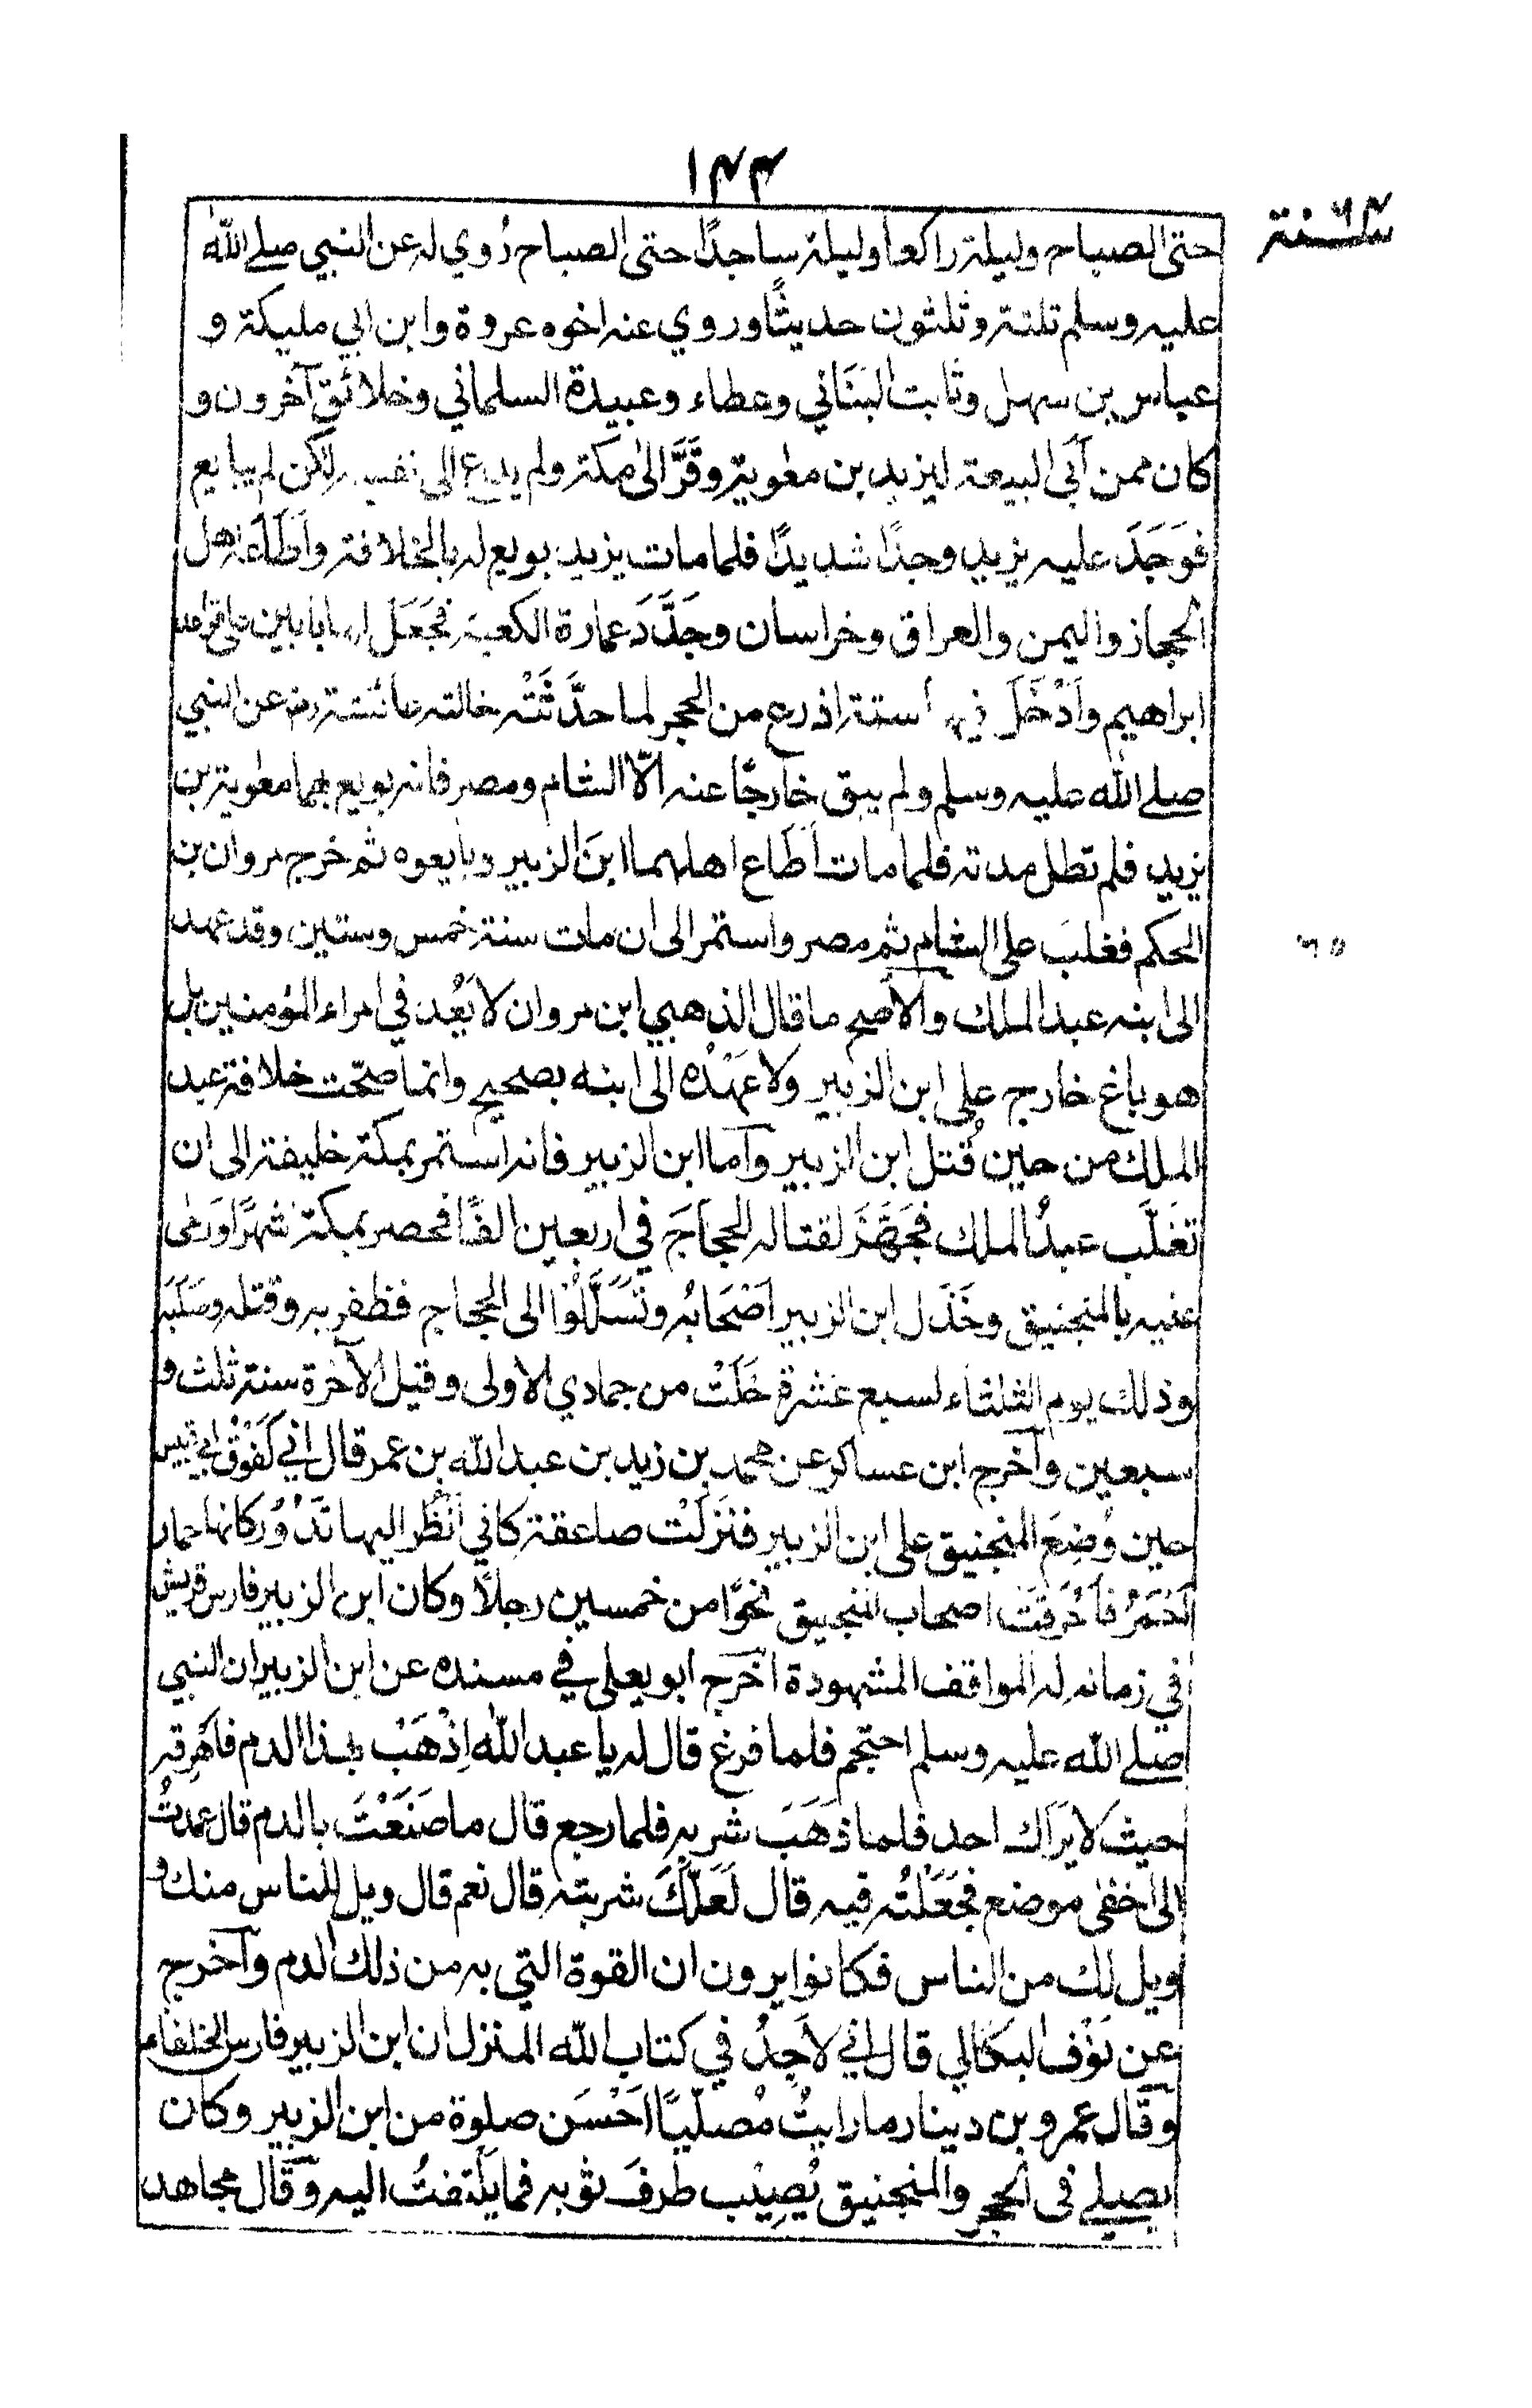 ١٤٣
سنة ٦٤
حتى الصباح وليلة راكعا وليلة ساجدًا حتى الصباح رُوي له عن النبي صلے الله
عليه وسلم ثلثة وثلثون حديثًا وروي عنه اخوه عروة وابن ابي مليكة و
عباس بن سهل وثابت البنَاني وعطاء وعبيدة السلماني وخلائق آخرون و
كان ممن آبَى البيعة ليزيد بن معٰوية وفَرَّ الى مكة ولم يدع الى نفسه لكن لم يبايع
فوَجَدَ عليه يزيد وجدًا شديدًا فلما مات يزيد بويع له بالخلافة واَطَاعَه اهل
الحجاز واليمن والعراق وخراسان وجَدَّدَ عمارة الكعبة فجَعَلَ لها بابين على قواعد
ابراهيم واَدْخَلَ فيها ستة اذرع من الحجر لما حدَّثَتْه خالته عائشة رض عن النبي
صلے الله عليه وسلم ولم يبق خارجًا عنه الّا الشام ومصر فانه بويع بهما معٰوية بن
يزيد فلم تطل مدته فلما مات اَطَاع اهلهما ابنَ الزبير وبايعوه ثم خرج مروان بن
الحكم فغلبَ على الشام ثم مصر واستمر الى ان مات سنة خمس وستين وقد عهد
٦٥
الى ابنه عبد الملك والاصح ما قال الذهبي ابن مروان لا يُعُد في امراء المؤمنين بل
هو باغ خارج على ابن الزبير ولا عَهْدُه الى ابنه بصحيح وانما صحّت خلافة عبد
الملك من حين قُتل ابن الزبير وآما ابن الزبير فانه استمر بمكة خليفة الى ان
تغَلَّب عبدُ الملك فجَهَّزَ لقتاله الحجاجَ في اربعين الفًا فحصر بمكة شهرًا ورَمٰى
عليه بالمنجنيق وخَذَل ابن الزبير اَصْحَابُه وتَسَلَّلُوْا الى الحجاج فظفر به وقتله وصَلَبَه
وذلك يوم الثلثاء لسبع عشرة خَلَتْ من جمادي الاولى وقيل الآخرة سنة ثلث و
سبعين وآخرج ابن عساكر عن محمد بن زيد بن عبد الله بن عمر قال اني لَفَوْقَ ابي قبيس
حين وُضِعَ المنجنيق على ابن الزبير فنَزَلَتْ صاعقة كاني اَنْظُر اليها تَدُوْرُ كانها حمار
اَحْمَرُ فاَحْرَقَتْ اصحاب المنجنيق نحوًا من خمسين رجلًا وكان ابن الزبير فارس قريش
في زمانه له المواقف المشهودة آخرج ابو يعلى في مسنده عن ابن الزبير ان النبي
صلے الله عليه وسلم احتجم فلما فرغ قال له يا عبد الله اِذْهَبْ بهذا الدم فاَهْرِقه
حيث لا يرَاك احد فلما ذهَبَ شربه فلما رجع قال ما صَنَعْتَ بالدم قال عمدتُ
الى اخفٰى موضع فجَعَلْتُه فيه قال لَعَلَّكَ شربته قال نعم قال ويل للناس منك و
ويل لك من الناس فكانوا يرون ان القوة التي به من ذلك الدم وآخرج
عن نَوْف البكالي قال اني لاَجِدُ في كتاب الله المنزل ان ابن الزبير فارس الخلفاء
وقال عمرو بن دينار ما رايتُ مُصلّيًا اَحْسَن صلٰوة من ابن الزبير وكان
يصلے في الحجر والمنجنيق يُصِيْب طرفَ ثوبه فما يَلْتفتُ اليه وقال مجاهد